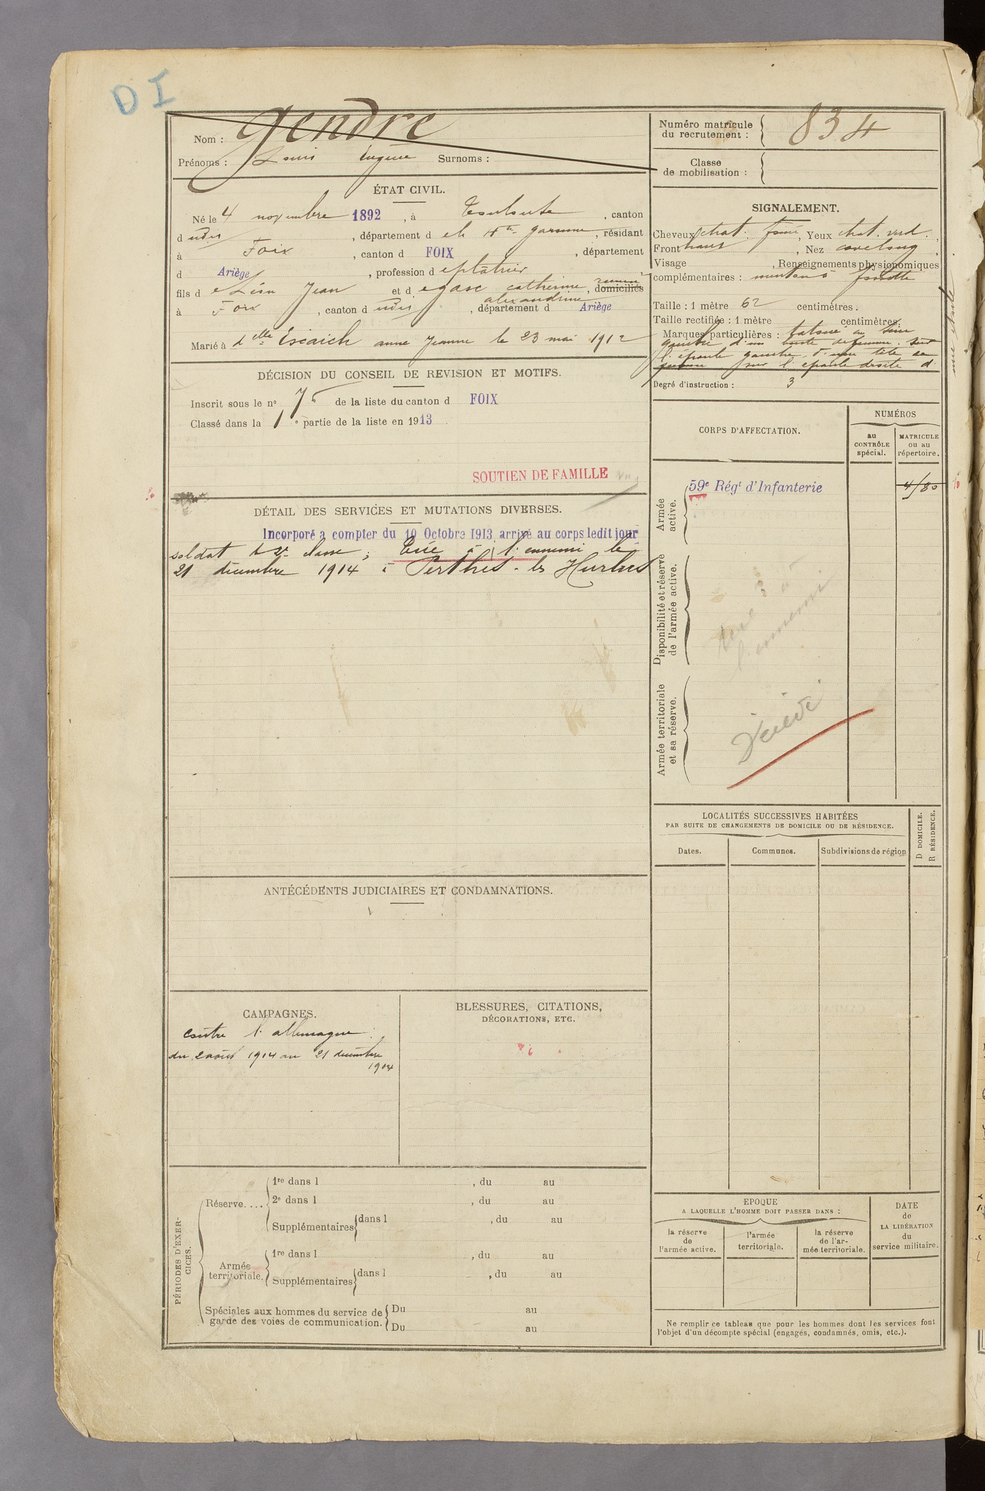 D I
Nom : Gendre
Prénoms : Louis Eugène Surnoms :
Numéro matricule
du recrutement : 834
Classe
de mobilisation :
ÉTAT CIVIL.
Né le 4 novembre 1892, à Toulouse, canton
d udis, département d e la Hte Garonne, résidant
à Foix, canton d FOIX, département
d Ariège, profession d e plâtrier
fils d e Léon Jean et d e gasc catherine alexandrine, domiciliés
à Foix, canton d udis, département d Ariège
Marié à d elle Escaich anne Jeanne le 23 mai 1912
SIGNALEMENT.
Cheveux chat. foncé, Yeux chat. verd.
Front haut, Nez cave long
Visage , Renseignements physionomiques
complémentaires : menton à fossette
Taille : 1 mètre 62 centimètres.
Taille rectifiée : 1 mètre centimètres.
Marques particulières : tatoué au bras
gauche d'un buste de femme sur
l'épaule gauche d'une tête de
femme sur l'épaule droite d
Degré d'instruction : 3
DÉCISION DU CONSEIL DE REVISION ET MOTIFS.
Inscrit sous le n° 75 de la liste du canton d FOIX
Classé dans la 1e partie de la liste en 1913
SOUTIEN DE FAMILLE
DÉTAIL DES SERVICES ET MUTATIONS DIVERSES.
Incorporé a compter du 10 Octobre 1913 arrivé au corps ledit jour
soldat de 2e classe ; Tué à l'ennemi le
21 décembre 1914 à Perthes-les Hurlus
CORPS D'AFFECTATION.
NUMÉROS
au
CONTRÔLE
spécial.
MATRICULE
ou au
répertoire.
Armée
active.
59e Régt d'Infanterie
Disponibilité et réserve
de l'armée active.
tué à
l'ennemi
Armée territoriale
et sa réserve.
Décédé
LOCALITÉS SUCCESSIVES HABITÉES
PAR SUITE DE CHANGEMENTS DE DOMICILE OU DE RÉSIDENCE.
Dates.
Communes.
Subdivisions de région
D DOMICILE.
R RÉSIDENCE.
ANTÉCÉDENTS JUDICIAIRES ET CONDAMNATIONS.
CAMPAGNES.
contre l'allemagne :
du 2 août 1914 au 21 décembre
1914
BLESSURES, CITATIONS,
DÉCORATIONS, ETC.
PÉRIODES D'EXER-
CICES.
Réserve....
1re dans l , du au
2e dans l , du au
Supplémentaires dans l , du au
Armée
territoriale.
1re dans l , du au
Supplémentaires dans l , du au
Spéciales aux hommes du service de
garde des voies de communication.
Du au
Du au
EPOQUE
A LAQUELLE L'HOMME DOIT PASSER DANS :
la réserve
de
l'armée active.
l'armée
territoriale.
la réserve
de l'ar-
mée territoriale.
DATE
de
LA LIBÉRATION
du
service militaire.
Ne remplir ce tableau que pour les hommes dont les services font
l'objet d'un décompte spécial (engagés, condamnés, omis, etc.).